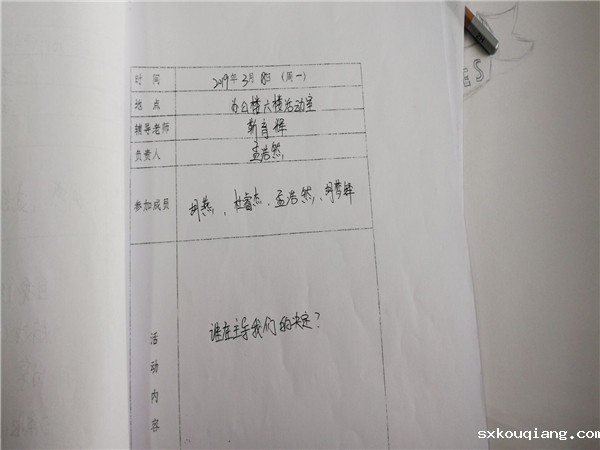 时 间 2019年3月18日 (周一)
地 点 办公楼六楼活动室
辅导老师 靳育辉
负责人 孟浩然
参加成员 胡燕、杜睿杰、孟浩然、胡梦铎
谁在主导我们的决定？
活
动
内
容
ES
sxkouqiang.com